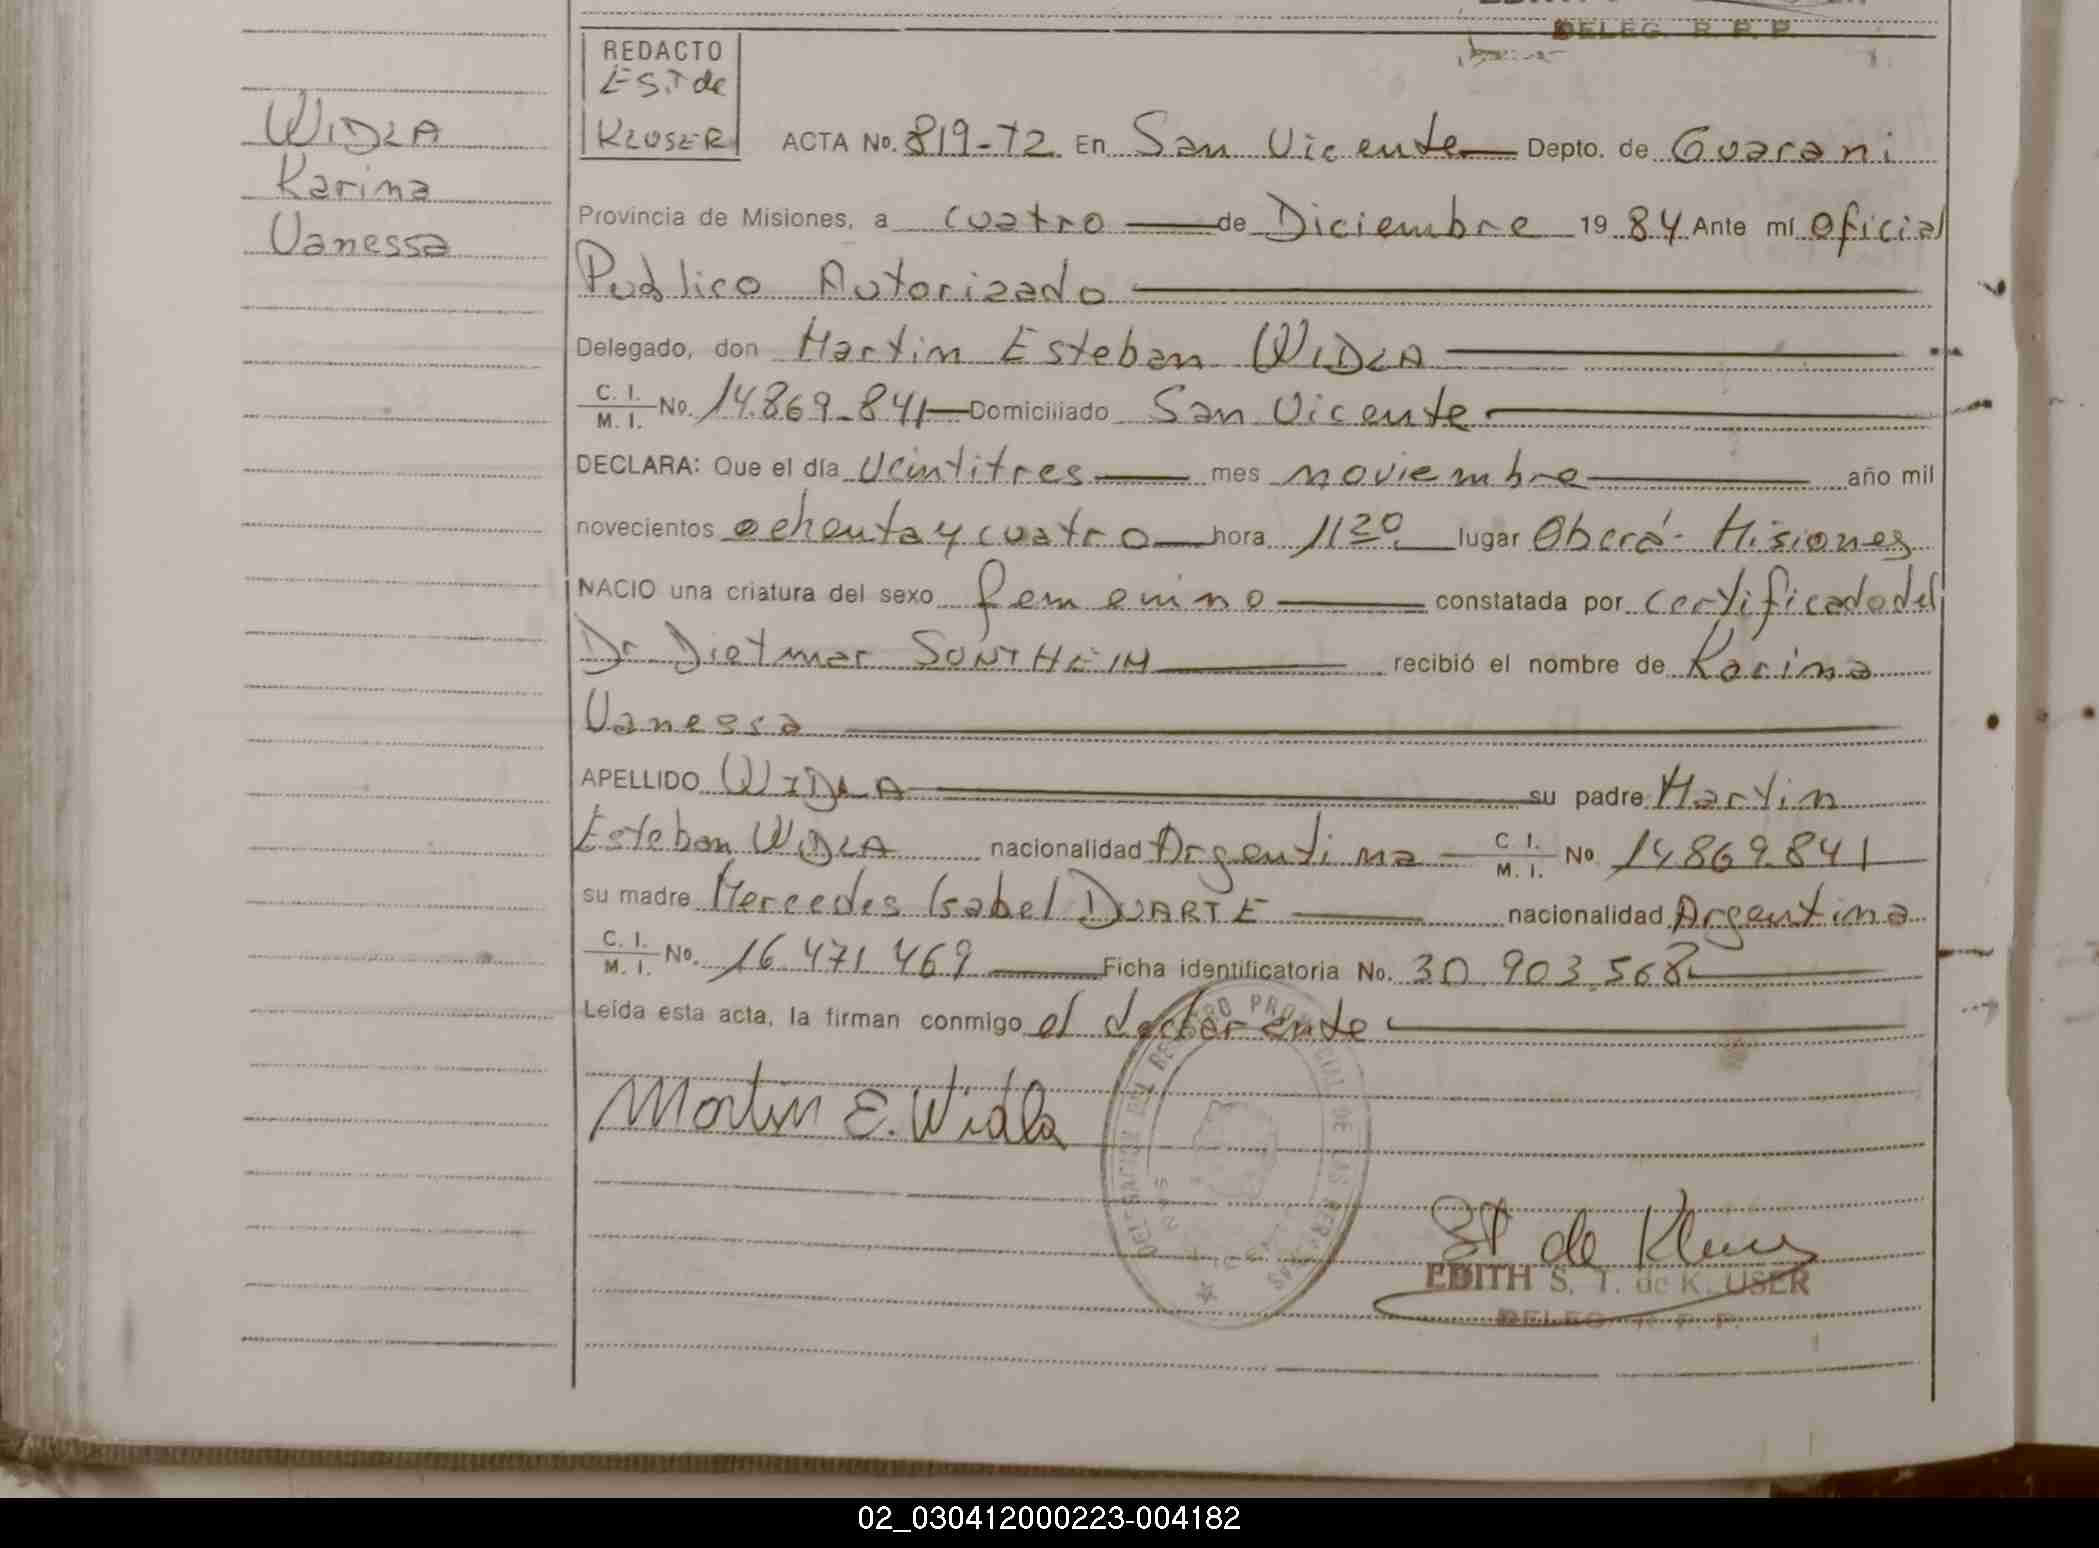 DELEG. R. P. P.
REDACTO
E S.T de
KLUSER
WIDLA
Karina
Vanessa
ACTA No. 819-T2 En San Vicente Depto. de Guarani
Provincia de Misiones, a cuatro de Diciembre 1984 Ante mí Oficial
Publico Autorizado
Delegado, don Martin Esteban WIDLA
C. I.
M. I. No. 14.869.841 Domiciliado San Vicente
DECLARA: Que el día veintitres mes noviembre año mil
novecientos ochenta y cuatro hora 1120 lugar Oberá - Misiones
NACIO una criatura del sexo femenino constatada por certificado del
Dr Dietmar SONTHEIM recibió el nombre de Karina
Vanessa
APELLIDO WIDLA su padre Martin
Esteban WIDLA nacionalidad Argentina C. I.
M. I. No 14.869.841
su madre Mercedes Isabel DUARTE nacionalidad Argentina
C. I.
M. I. No. 16.471.469 Ficha identificatoria No. 30.903.568
Leída esta acta, la firman conmigo el declarante
Martin E. Widla
DELEGACION DEL REGISTRO PROVINCIAL DE LAS PERSONAS
ST de Kluser
EDITH S. T. de K. USER
DELEG. R. P. P.
02_030412000223-004182